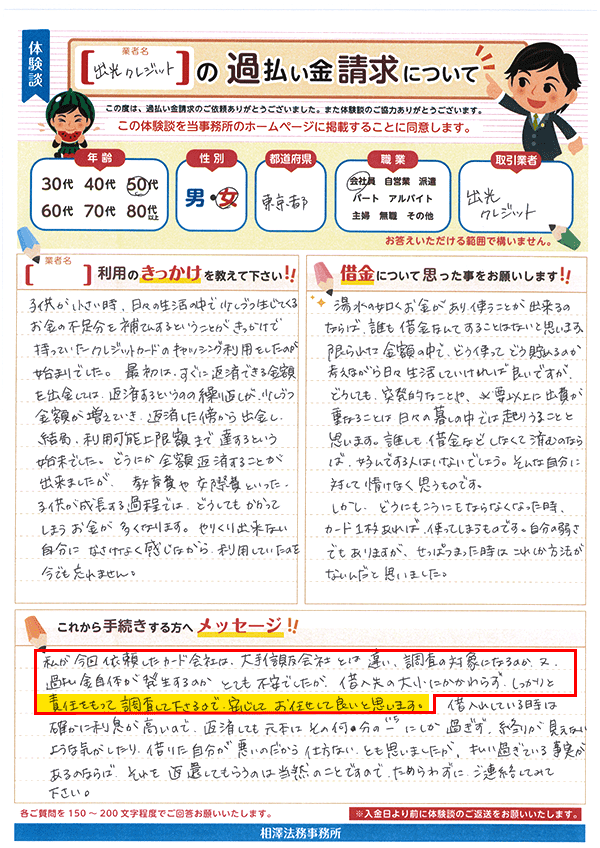 体験談
業者名
出光クレジット
の過払い金請求について
この度は、過払い金請求のご依頼ありがとうございました。また体験談のご協力ありがとうございます。
この体験談を当事務所のホームページに掲載することに同意します。
年齢
30代 40代 50代
60代 70代 80代以上
性別
男・女
都道府県
東京都
職業
会社員 自営業 派遣
パート アルバイト
主婦 無職 その他
取引業者
出光
クレジット
お答えいただける範囲で構いません。
業者名
利用のきっかけを教えて下さい!!
子供が小さい時、日々の生活の中で少しづつ生じてくる
お金の不足分を補てんするということがきっかけで
持っていたクレジットカードのキャッシング利用をしたのが
始まりでした。最初は、すぐに返済できる金額
を出金しては、返済するというの繰り返しが、少しづつ
金額が増えていき、返済した傍から出金し、
結局、利用可能上限額まで達するという
始末でした。どうにか全額返済することが
出来ましたが、教育費や交際費といった、
子供が成長する過程では、どうしてもかかって
しまうお金が多くなります。やりくり出来ない
自分になさけなく感じながら利用していたのを
今でも忘れません。
借金について思った事をお願いします!!
湯水の如くお金があり、使うことが出来るの
ならば、誰も借金なんてすることはないと思います。
限られた金額の中で、どう使ってどう貯めるのか
考えながら日々生活していければ良いですが、
どうしても、突発的なことや、必要以上に出費が
重なることは日々の暮しの中では起りうることと
思います。誰しも借金などしなくて済むのなら
ば、好んでする人はいないでしょう。そんな自分に
対して情けなく思うものです。
しかし、どうにもこうにもならなくなった時、
カード1枚あれば、使ってしまうものです。自分の弱さ
でもありますが、せっぱつまった時はこれしか方法が
ないんだと思いました。
これから手続きする方へメッセージ!!
私が今回依頼したカード会社は、大手信販会社とは違い、調査の対象になるのか、又、
過払い金自体が発生するのかとても不安でしたが、借入先の大小にかかわらず、しっかりと
責任をもって調査して下さるので、安心してお任せして良いと思います。借入れしている時は
確かに利息が高いので、返済しても元本はその何分の一にしか過ぎず、終りが見えない
ような気がしたり、借りた自分が悪いのだから仕方ない、とも思いましたが、払い過ぎている事実が
あるのならば、それを返還してもらうのは当然のことですので、ためらわずに、ご連絡してみて
下さい。
各ご質問を150~200文字程度でご回答お願いいたします。
※入金日より前に体験談のご返送をお願いいたします。
相澤法務事務所